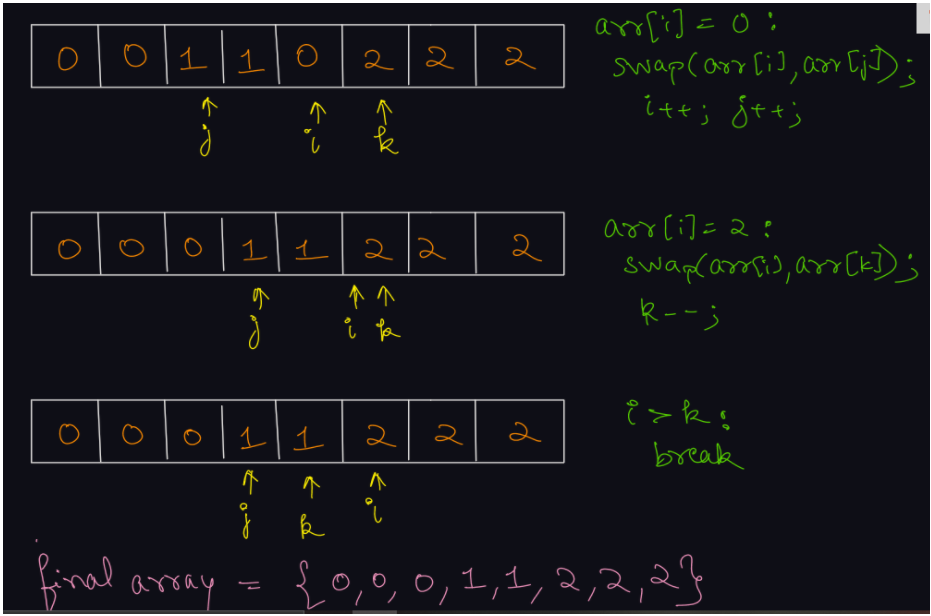 0 0 1 1 0 2 2 2
j i k
arr[i] = 0 :
swap(arr[i], arr[j]);
i++; j++;
0 0 0 1 1 2 2 2
j i k
arr[i] = 2 :
swap(arr[i], arr[k]);
k--;
0 0 0 1 1 2 2 2
j k i
i > k :
break
final array = { 0, 0, 0, 1, 1, 2, 2, 2}